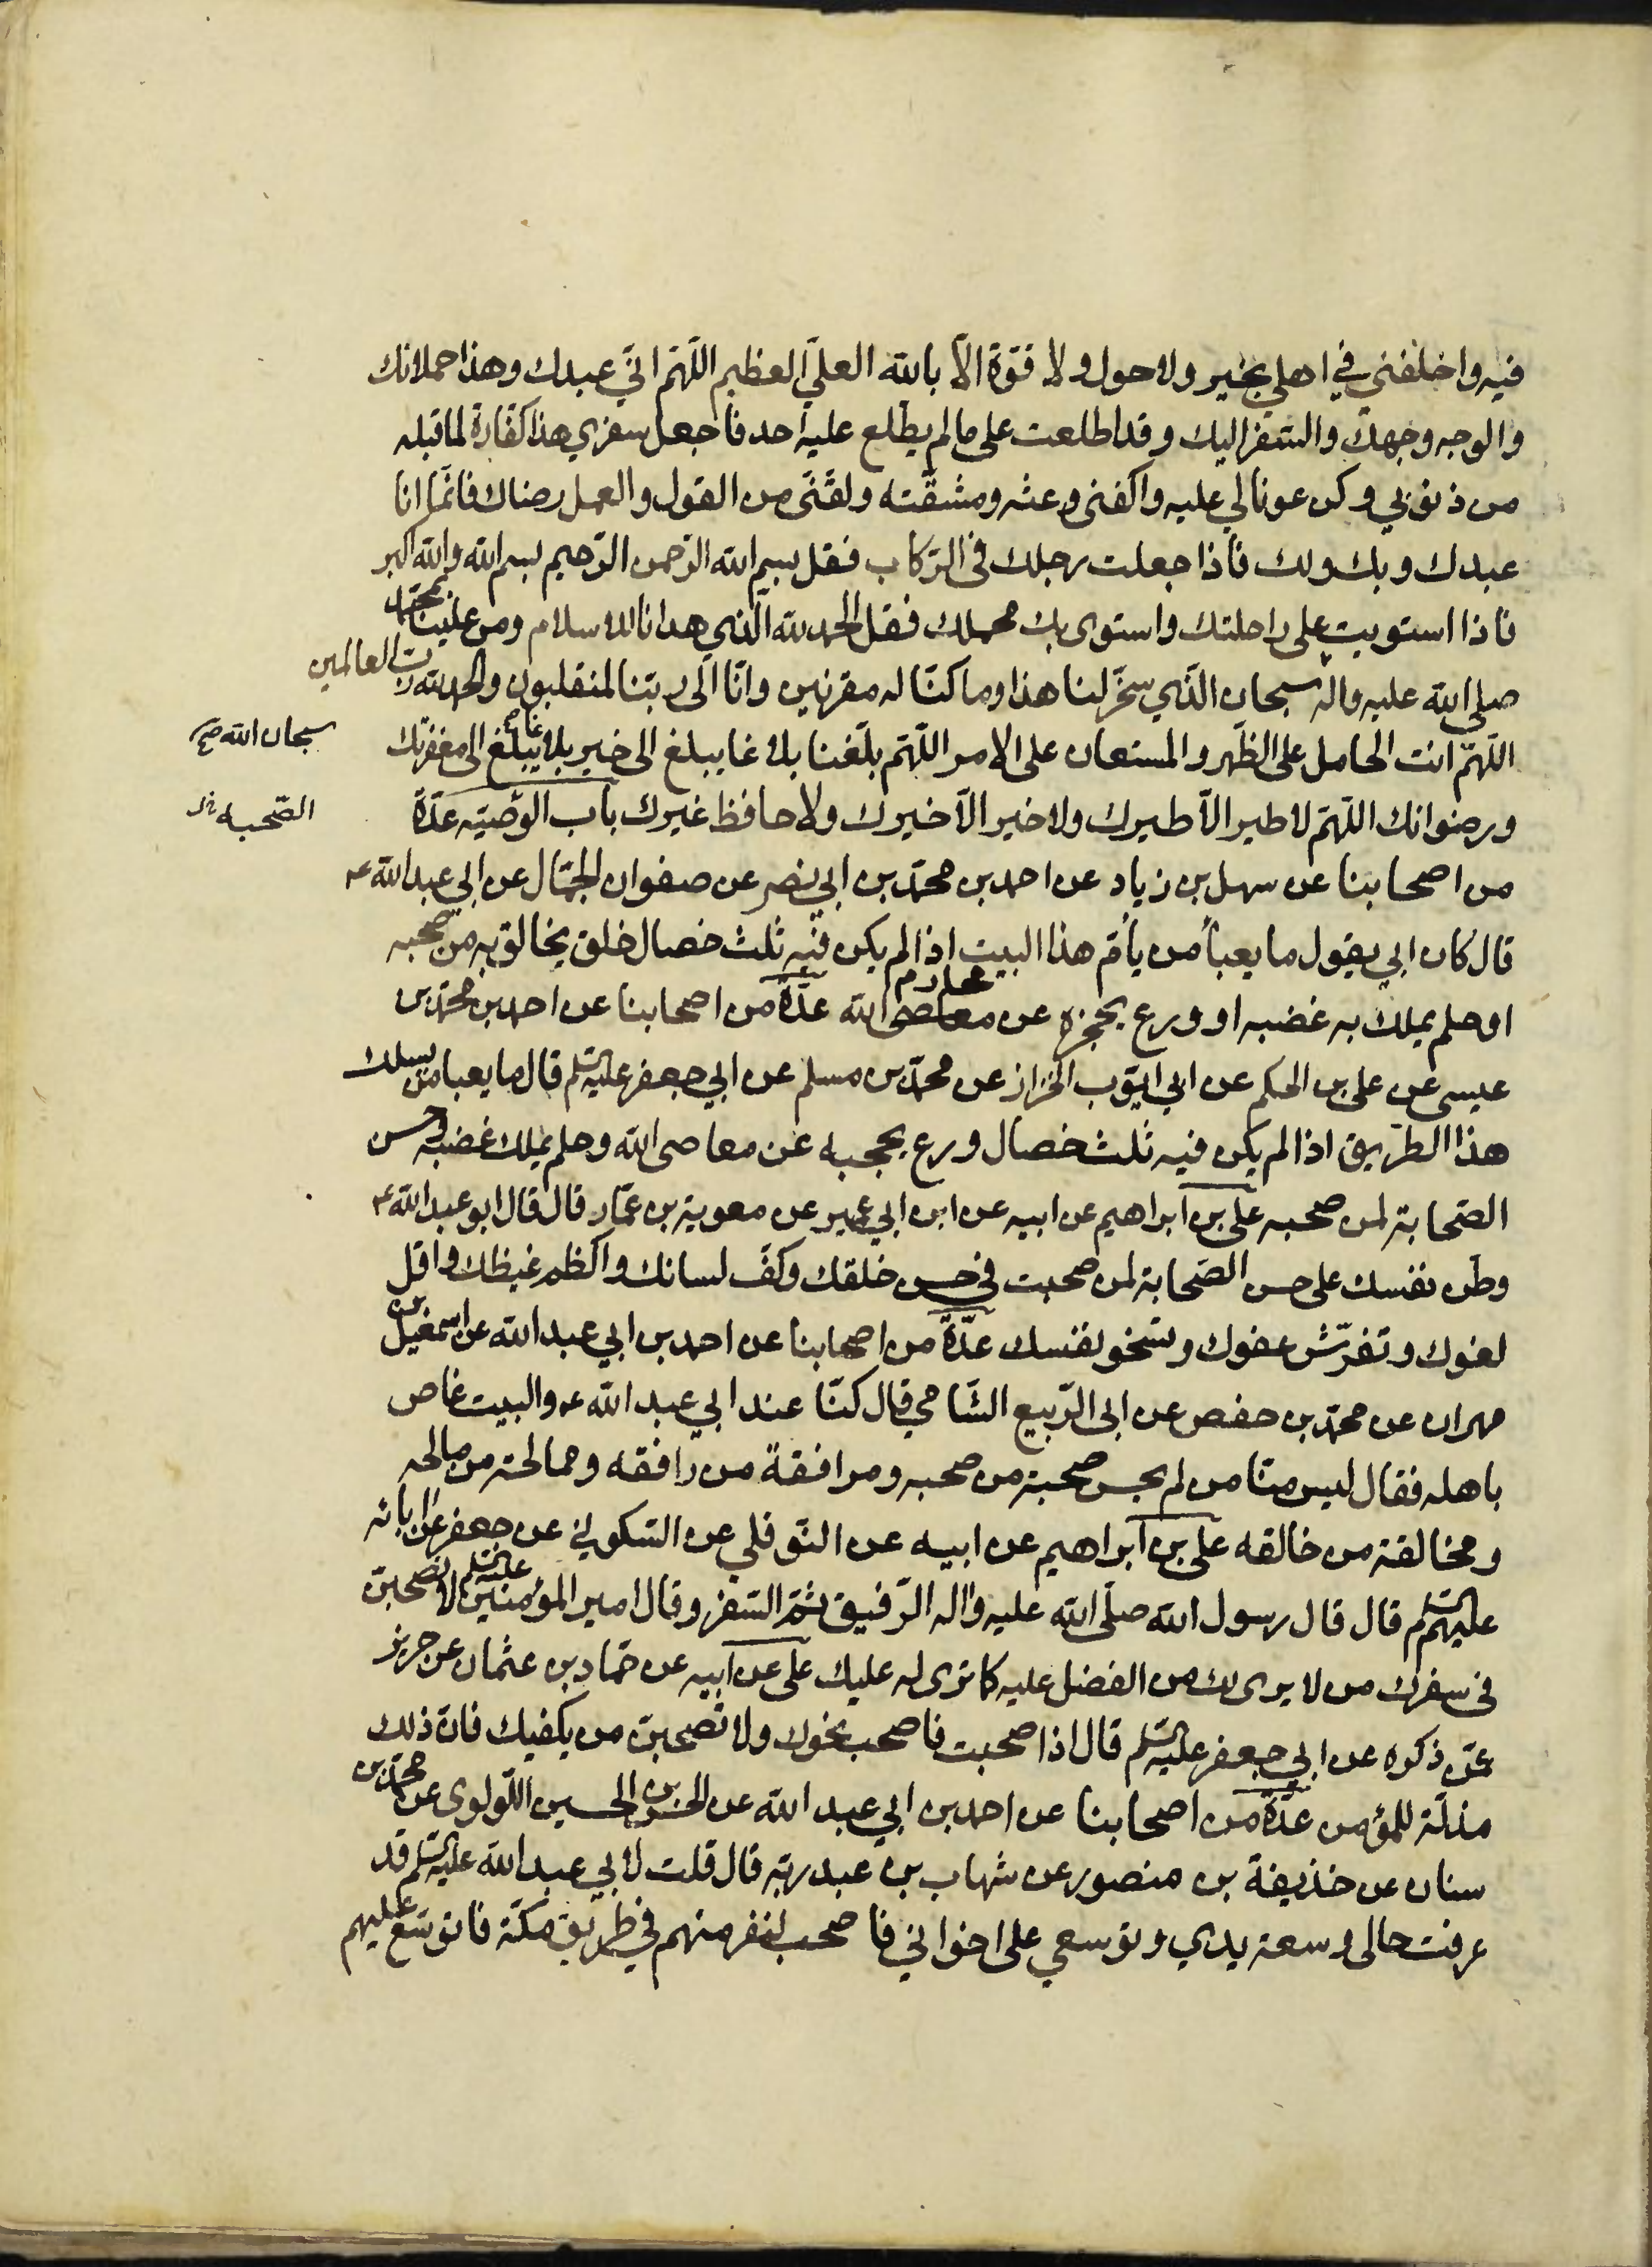 فيه واخلفني في اهلي بخير ولا حول ولا قوّة الّا بالله العليّ العظيم اللّهمّ انّي عبدك وهذا حملانك
والوجه وجهك والسّفر اليك وقد اطلعت على ما لم يطّلع عليه احد فاجعل سفري هذا كفّارة لما قبله
من ذنوبي وكن عونا لي عليه واكفني وعثه ومشقّته ولقّنّي من القول والعمل رضاك فانّما انا
عبدك وبك ولك فاذا جعلت رجلك في الرّكاب فقل بسم الله الرّحمن الرّحيم بسم الله والله اكبر
فاذا استويت على راحلتك واستوى بك محملك فقل الحمد لله الّذي هدانا للاسلام ومن علينا بمحمّد
صلى الله عليه واله سبحان الّذي سخّر لنا هذا وما كنّا له مقرنين وانّا الى ربّنا لمنقلبون والحمد لله ربّ العالمين
اللّهمّ انت الحامل على الظّهر والمستعان على الامر اللّهمّ بلّغنا بلاغا يبلغ الى خير بلاغا يبلّغ الى مغفرتك
سبحان الله صح
ورضوانك اللّهمّ لا طير الّا طيرك ولا خير الّا خيرك ولا حافظ غيرك باب الوصيّة عدّة
الصّحبه
من اصحابنا عن سهل بن زياد عن احمد بن محمّد بن ابي نصر عن صفوان الجمّال عن ابي عبد الله ع
قال كان ابي يقول ما يعبأ من يأمّ هذا البيت اذا لم يكن فيه ثلث خصال خلق يخالق به من صحبه
او حلم يملك به غضبه او ورع يحجزه عن معاصى محارم الله عدّة من اصحابنا عن احمد بن محمّد بن
عيسى عن على بن الحكم عن ابي ايّوب الخزاز عن محمّد بن مسلم عن ابي جعفر عليه السّلم قال ما يعبا من يسلك
هذا الطريق اذا لم يكن فيه ثلث خصال ورع يحجبه عن معاصى الله وحلم يملك غضبه وحسن
الصّحابة لمن صحبه على بن ابراهيم عن ابيه عن ابن ابي عمير عن معوية بن عمّار قال قال ابو عبد الله ع
وطّن نفسك على حسن الصّحابة لمن صحبت في حسن خلقك وكفّ لسانك واكظم غيظك واقل
لغوك وتفرّش عفوك وتسخو نفسك عدّة من اصحابنا عن احمد بن ابي عبد الله عن اسمعيل بن
مهران عن محمّد بن حفص عن ابى الرّبيع الشّامي قال كنّا عند ابي عبد الله ع والبيت غاص
باهله فقال ليس منّا من لم يحسن صحبة من صحبه ومرافقة من رافقه وممالحة من مالحه
ومخالقة من خالقه على بن ابراهيم عن ابيه عن النّوفلي عن السّكوني عن جعفر عن ابائه
عليهم السّلم قال قال رسول الله صلّى الله عليه واله الرّفيق ثمّ السّفر وقال امير المؤمنين عليه السّلم لا تصحبنّ
في سفرك من لا يرى لك من الفضل عليه كما ترى له عليك على عن ابيه عن حمّاد بن عثمان عن حريز
عمّن ذكره عن ابي جعفر عليه السّلم قال اذا صحبت فاصحب نحوك ولا تصحبنّ من يكفيك فانّ ذلك
مذلّة للمؤمن عدّة من اصحابنا عن احمد بن ابي عبد الله عن الحسن بن الحسين اللّولوى عن محمّد بن
سنان عن حذيفة بن منصور عن شهاب بن عبد ربّه قال قلت لابي عبد الله عليه السّلم قد
عرفت حالى وسعة يدي وتوسعي على اخواني فاصحب النفر منهم في طريق مكّة فاتوسّع عليهم